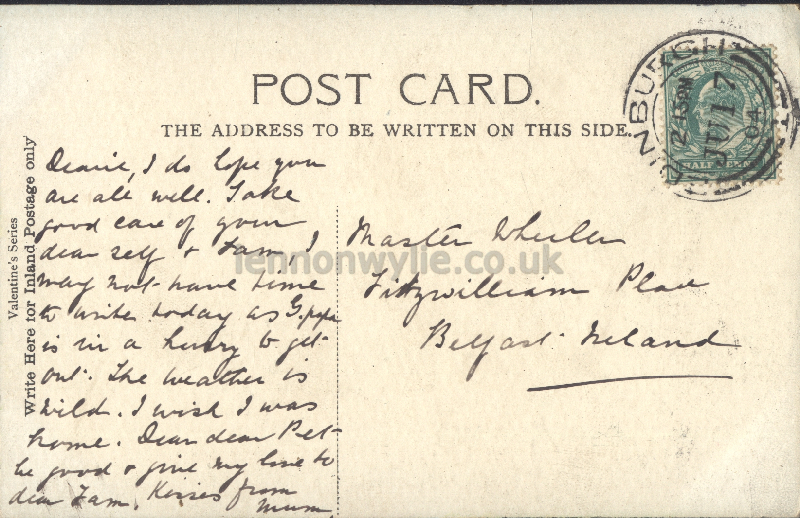 POST CARD.
THE ADDRESS TO BE WRITTEN ON THIS SIDE.
Valentine's Series
Write Here for Inland Postage only
Dearie, I do hope you
are all well. Take
good care of your
dear self & Fam, I
may not have time
to write today as G.papa
is in a hurry to get
out. The weather is
wild. I wish I was
home. Dear dear Pet
be good & give my love to
dear Fam. Kisses from
Mum
Master Wheeler
Fitzwilliam Place
Belfast Ireland
EDINBURGH
2.15PM
JU 17
04
HALF PENNY
lennonwylie.co.uk